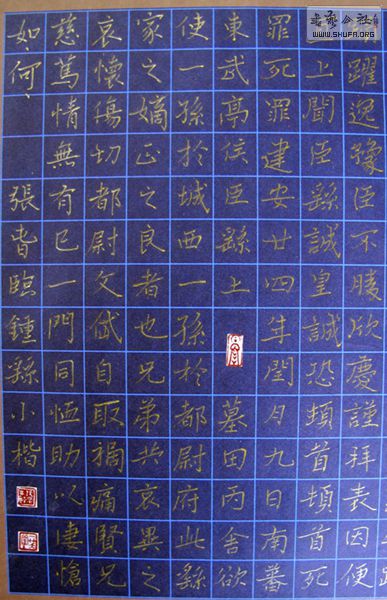 書法公社
WWW.SHUFA.ORG
躍逸豫臣不勝欣慶謹拜表因便
上聞臣繇誠皇誠恐頓首頓首死
罪死罪建安廿四年閏月九日南蕃
東武亭侯臣繇上
墓田丙舍欲
使一孫於城西一孫於都尉府此繇
家之嫡正之良者也兄弟共哀異之
哀懷傷切都尉文岱自取禍痛賢兄
慈篤情無有已一門同恤助以悽愴
如何、
張臨鍾繇小楷